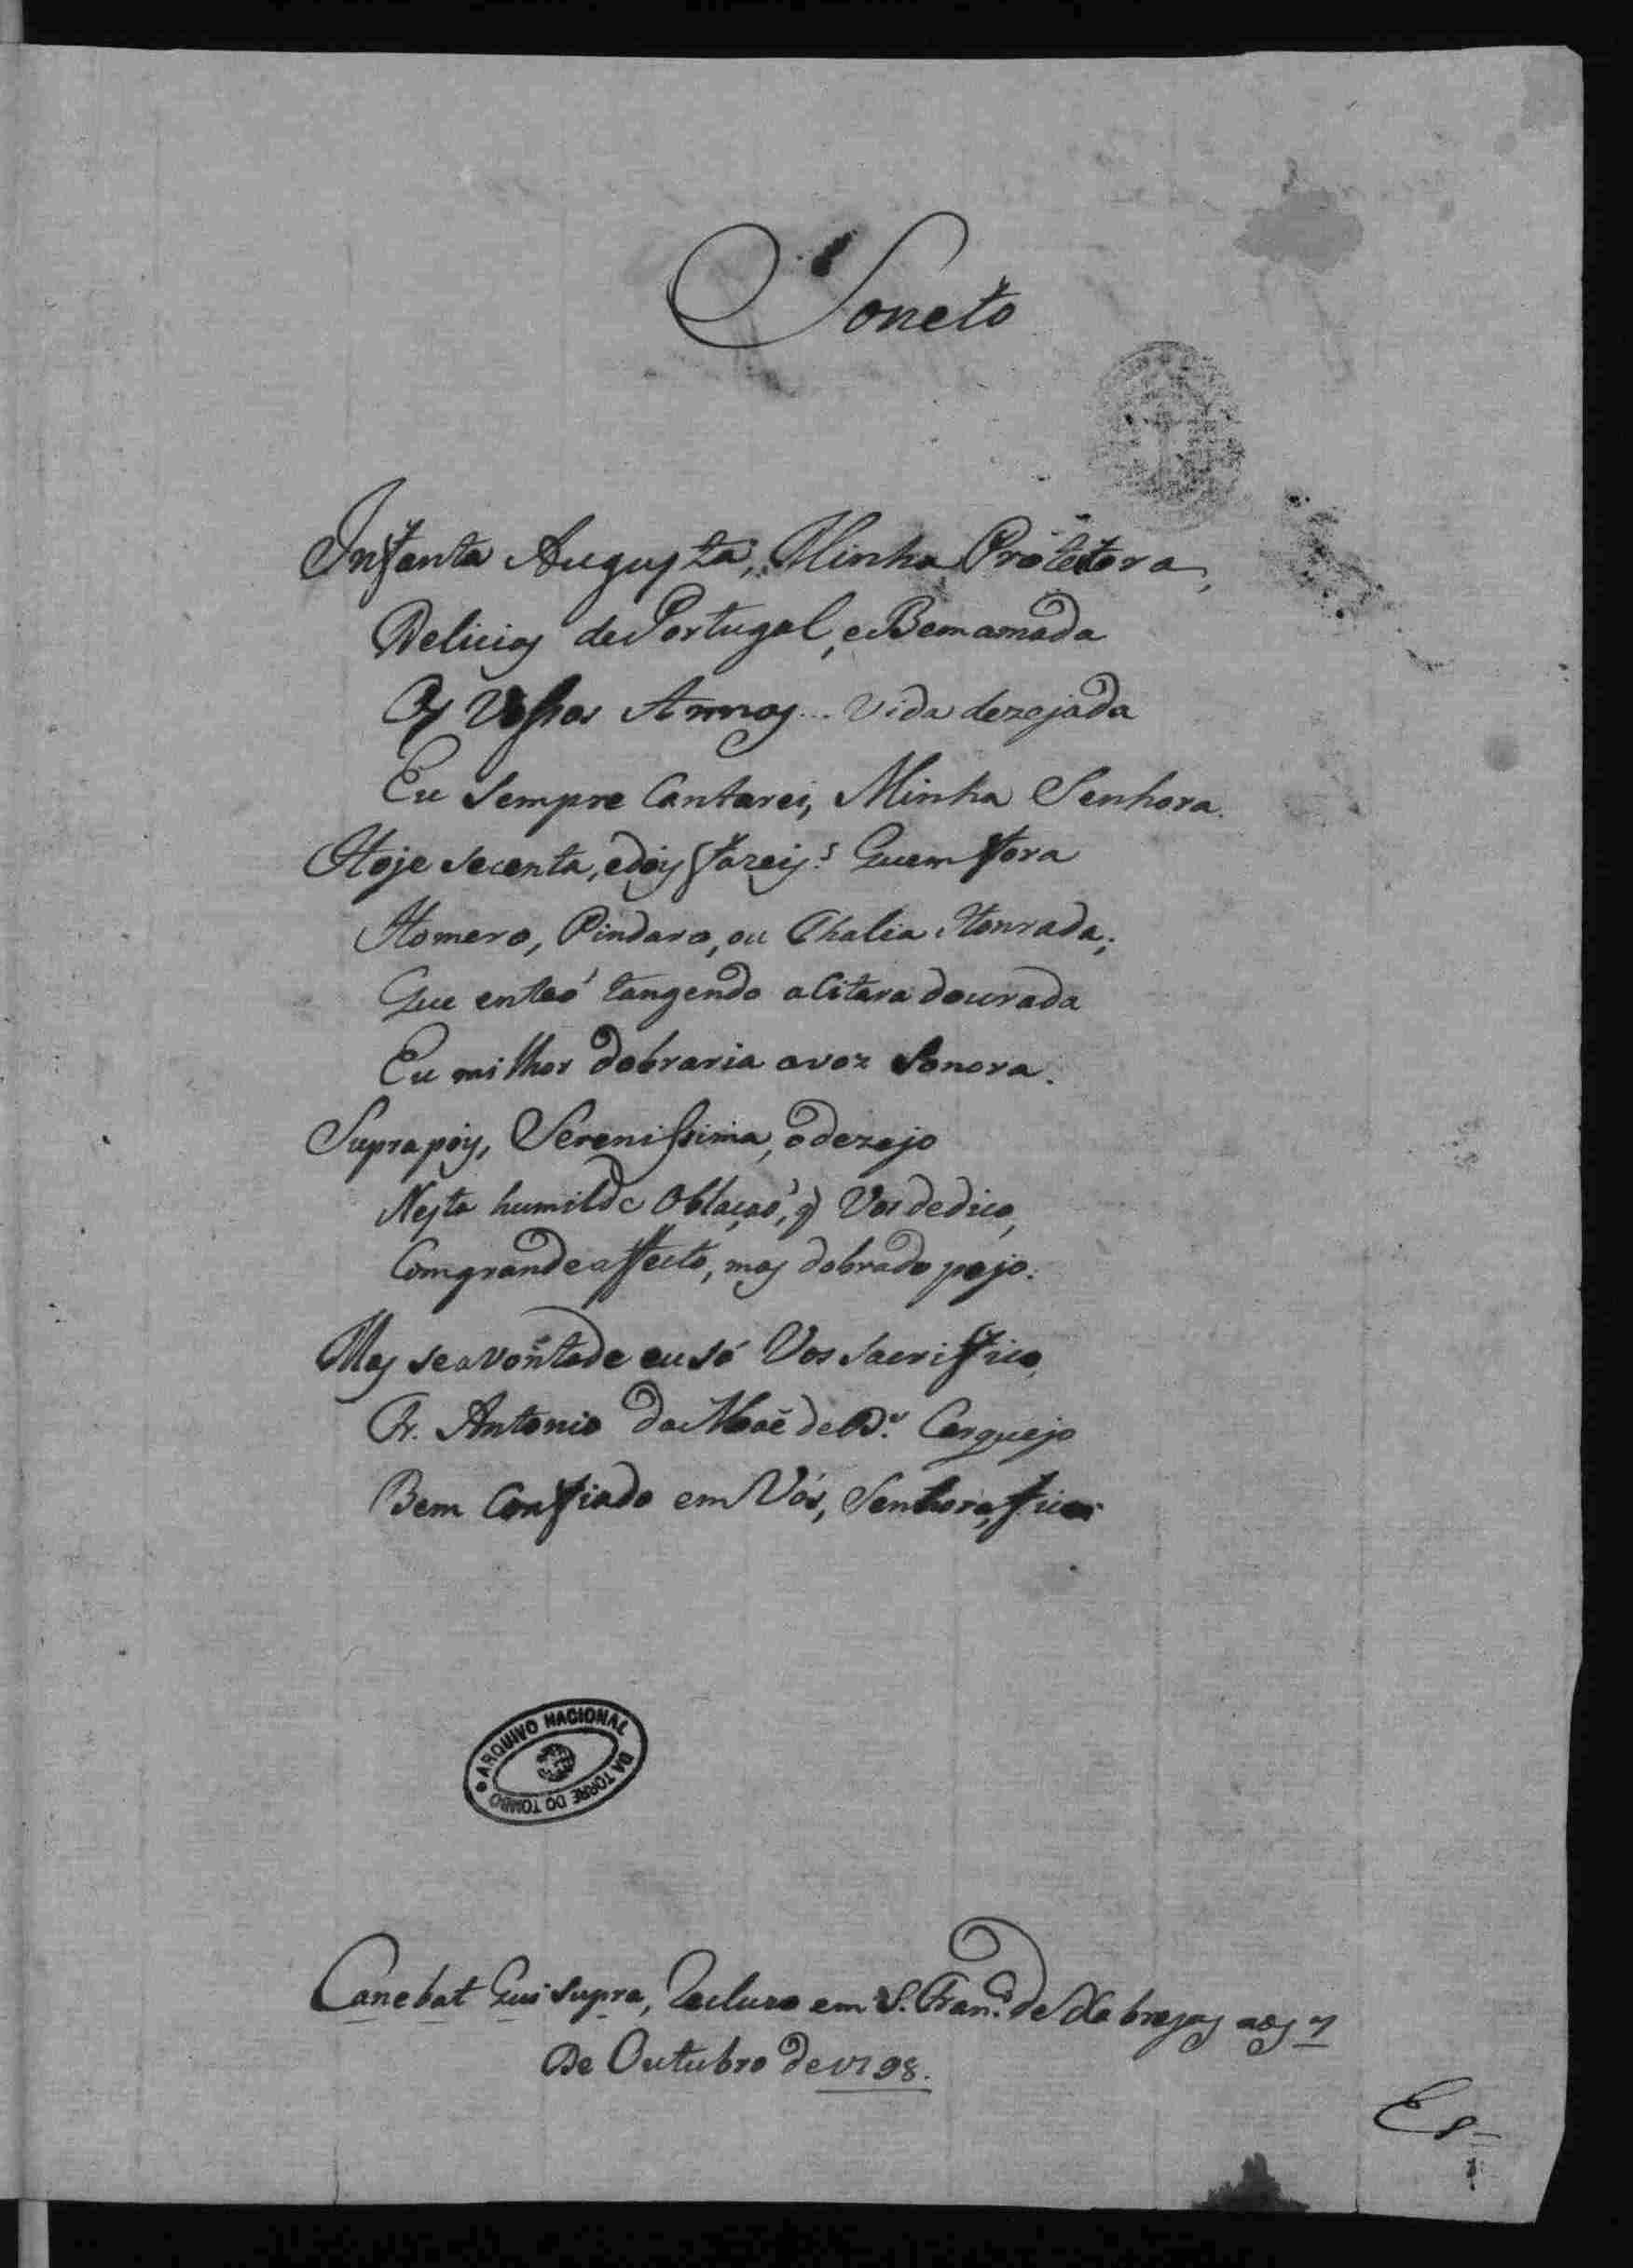 Soneto
Infanta Augusta, Minha Protetora,
Delicias de Portugal, e Bem amada
Os Vossos Annos... vida dezejada
Eu Sempre Cantarei, Minha Senhora.
Hoje secenta, e dois fazeis: Quem fora
Homero, Pindaro, ou Thalia Honrada;
Que entaó tangendo a Citara dourada
Eu milhor dobraria a voz Sonora.
Supra pois, Serenissima, o dezejo
Nesta humilde Oblaçaó, q Vos dedico,
Com grande affecto, mas dobrado pejo:
Mas se a vontade eu só Vos Sacrifico,
Fr. Antonio da Maẽ de D.s Cerquejo
Bem Confiado em Vós, Senhora, fico
ARQUIVO NACIONAL DA TORRE DO TOMBO
Canebat Qui Supra, Recluzo em S. Fran.co de Xabregas aos 7
De Outubro de 1798.